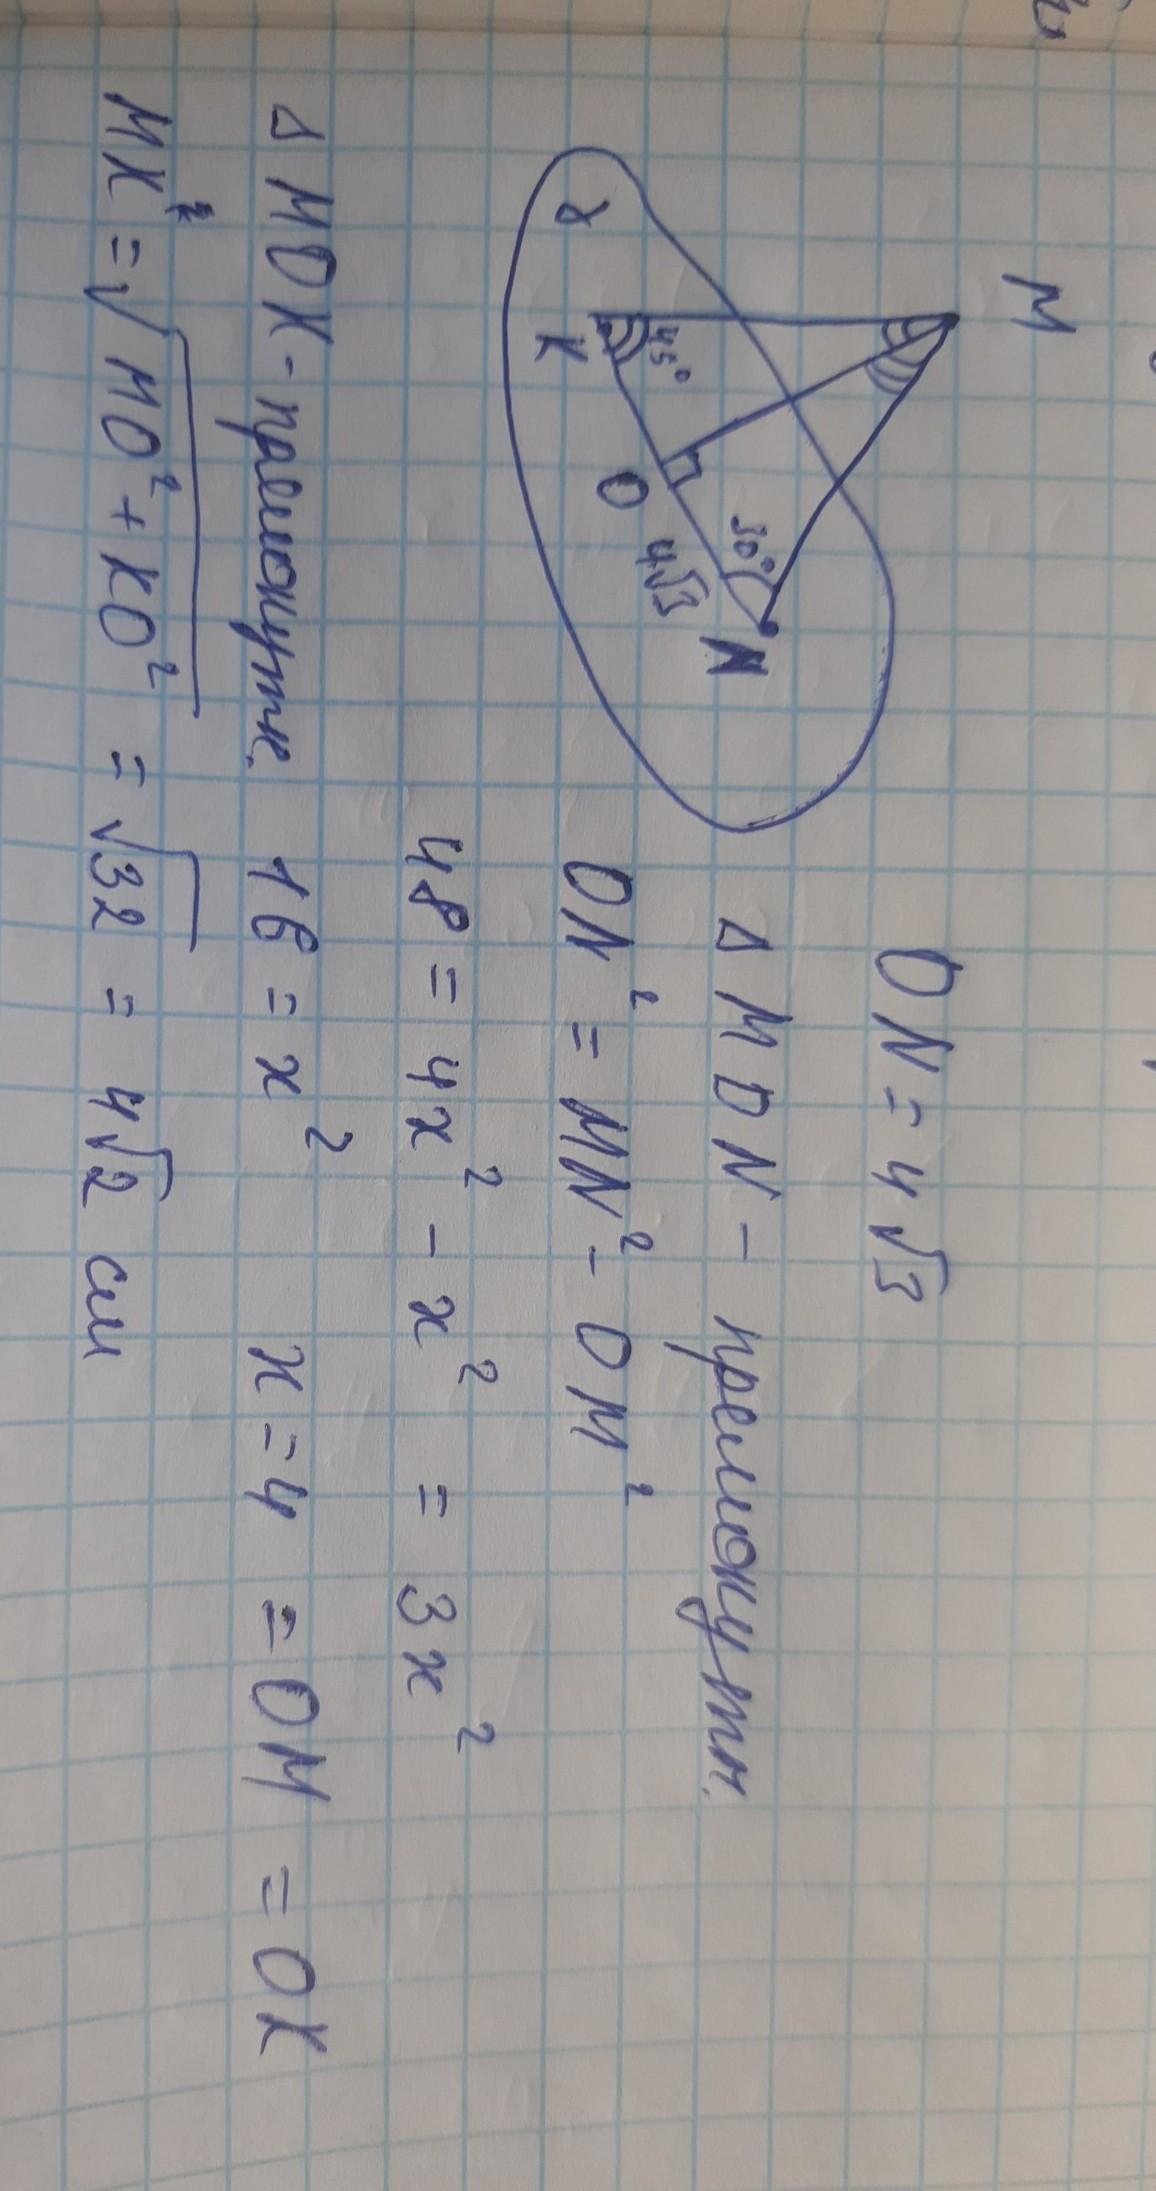 M
45°
30°
α
K
O
4√3
N
ON = 4√3
△ MON - прямокутн.
ON² = MN² - OM²
48 = 4x² - x² = 3x²
△ MOK - прямокутн. 16 = x² x = 4 = OM = OK
MK = √MO² + KO² = √32 = 4√2 см